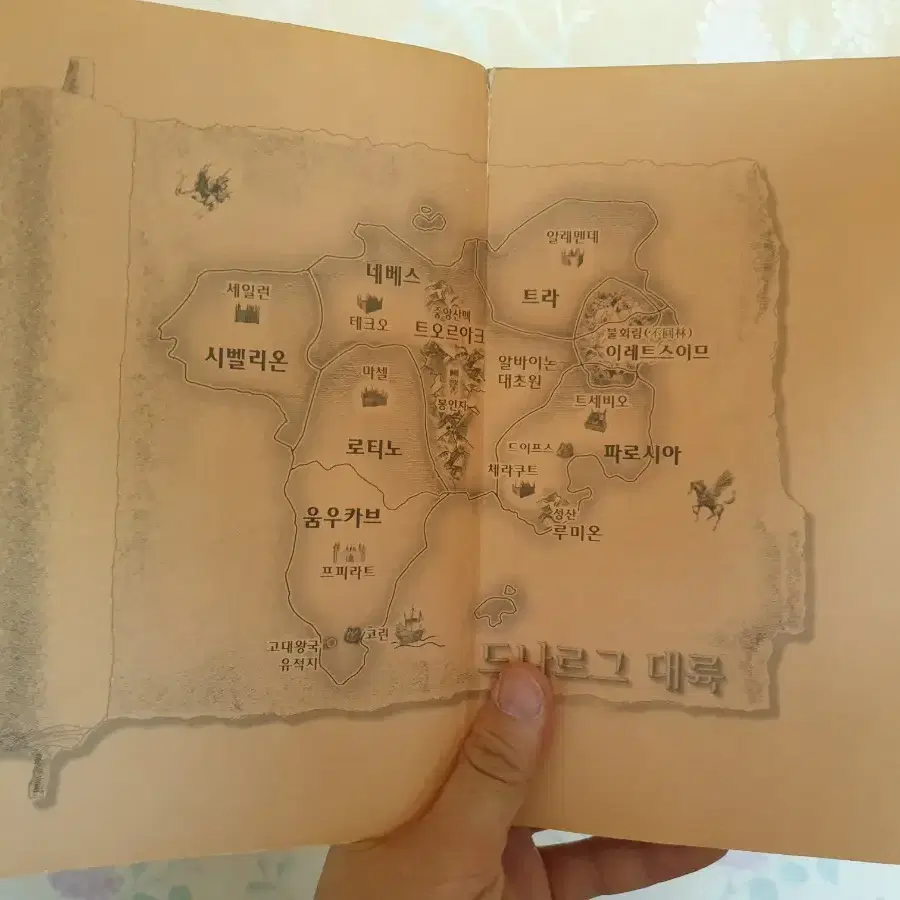 알레멘데
네베스
세일런
트라
테크오
중앙산맥
트오르아크
불화림(不回林)
이레트스이므
시벨리온
알바이논
대초원
마첼
봉인지
트세비오
로티노
드이프스
파로시아
체라쿠트
움우카브
성산
루미온
프피라트
고린
고대왕국
유적지
드나르그 대륙